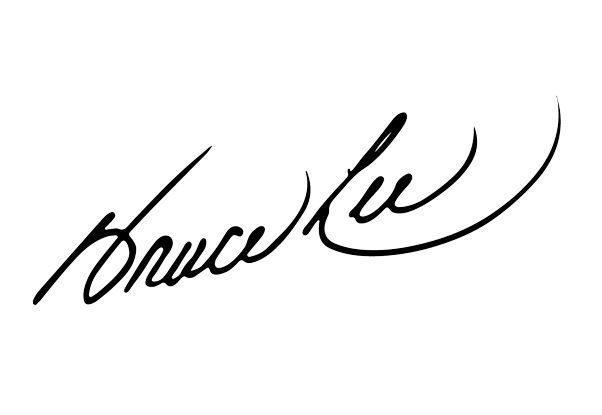 Bruce Lee